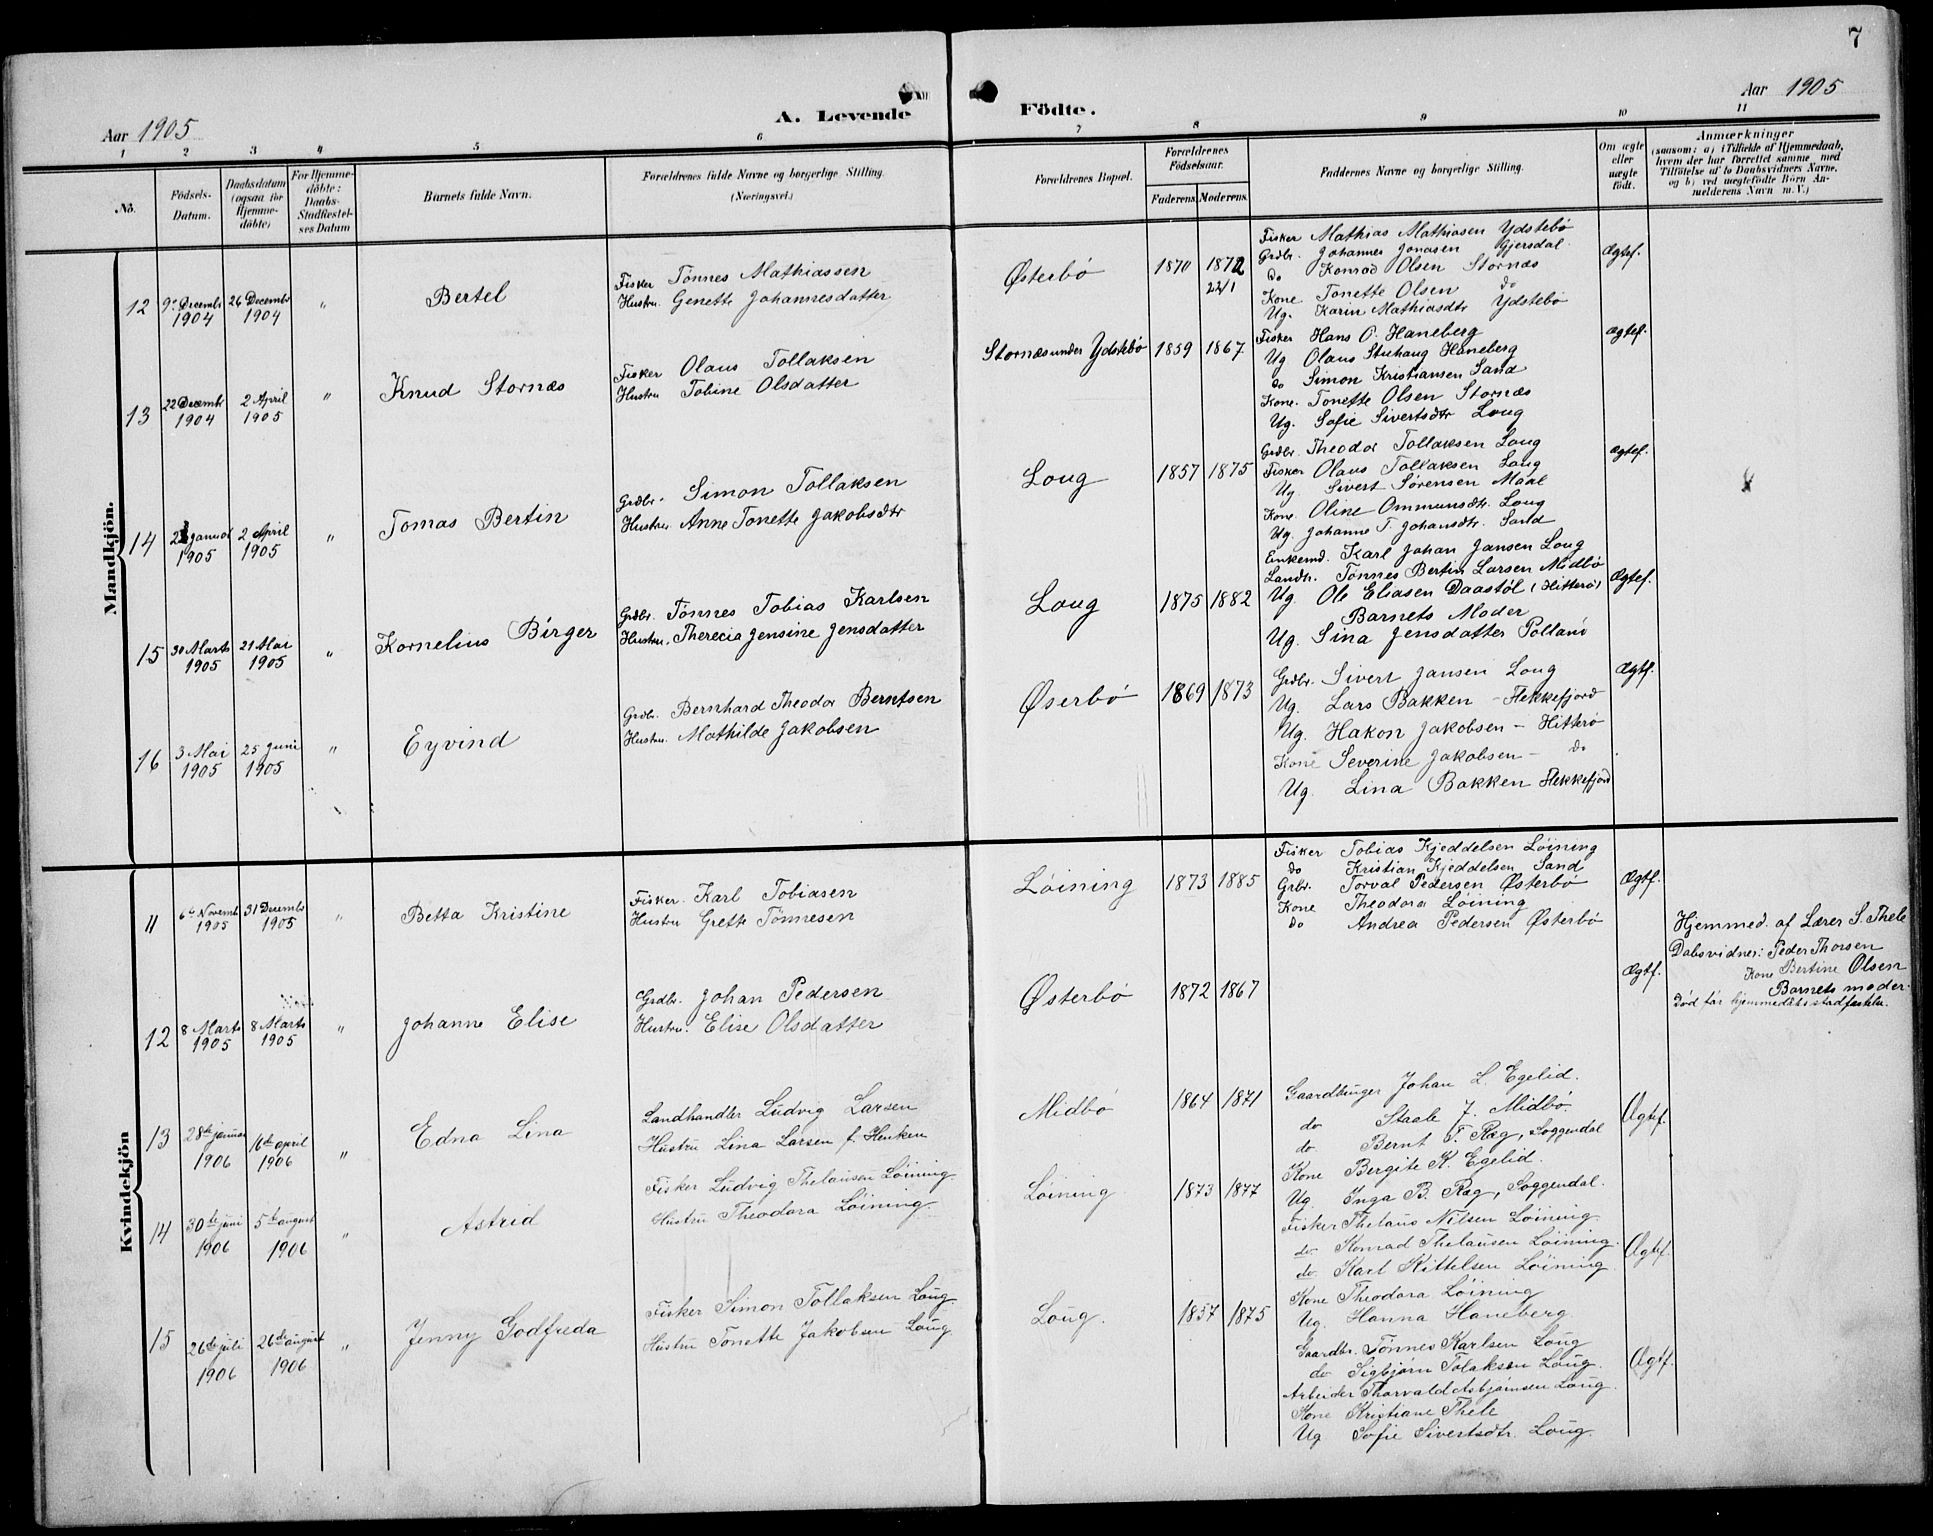 7
Aar 1905
A. Levende Födte.
Aar 1905
1 2 3 4 5 6 7 8 9 10 11
No.
Födsels-Datum.
Daabsdatum (ogsaa for Hjemme-döbte)
For Hjemme-döbte: Daabs-Stadfæstel-ses Datum
Barnets fulde Navn.
Forældrenes fulde Navne og borgerlige Stilling.
(Næringsvei.)
Forældrenes Bopæl.
Forældrenes Födselsaar.
Faderens Moderens
Faddernes Navne og borgerlige Stilling.
Om ægte eller uægte födt.
Anmærkninger
(saasom: a) i Tilfælde af Hjemmedaab,
hvem der har forrettet samme, med
Tilföielse af to Daabsvidners Navne,
og b) ved uegtefödte Börn An-
melderens Navn m. V.)
Mandkjön.
12 9de Decembr 1904 26 Decembr 1904 " Bertel
Fisker Tönnes Mathiassen
Hustru Genette Johannesdatter
Østerbö 1870 1872 22/1
Fisker Mathias Mathiasen Ydstebö
Grdbr. Johannes Jonasen Gjersdal
do Konrad Olsen Stornæs
Kone Tonette Olsen do
Ug. Karin Mathiasdtr Ydstebö
Ægtef.
13 22 Decembr 1904 2 April 1905 " Knud Stornæs
Fisker Olaus Tollaksen
Hustru Tobine Olsdatter
Stornæs under Ydstebö 1859 1867
Fisker Hans O. Haneberg
Ug Olaus Stuhaug Haneberg
do Simon Kristiansen Sand
Kone. Tonette Olsen Stornæs
Ug. Sofie Sivertsdtr Loug
Ægtef.
14 Januar 1905 2 April 1905 " Tomas Bertin
Grdbr. Simon Tollaksen
Hustru Anne Tonette Jakobsdtr
Loug 1857 1875
Grdbr. Theodor Tollaksen Loug
Fisker Olaus Tollaksen Loug
Ug Sivert Sörensen Maal
Kone. Oline Ommundsdtr. Loug
Ug. Johanne T. Johansdtr. Sand
Ægtef.
15 30 Marts 1905 21 Mai 1905 " Kornelius Birger
Grdbr. Tönnes Tobias Karlsen
Hustru. Therecia Jensine Jensdatter
Loug 1875 1882
Enkemd. Karl Johan Jansen Loug
Landh. Tönnes Bertin Larsen Midbö
Ug. Ole Eliasen Daastöl (Hitterö)
Barnets Moder
Ug. Sina Jensdatter Polland
Ægtef.
16 3 Mai 1905 25 Juni 1905 " Eyvind
Grdbr. Bernhard Theodor Berntsen
Hustru. Mathilde Jakobsen
Øserbö 1869 1873
Grdbr. Sivert Jansen Loug
Ug. Lars Bakken - Flekkefjord
Ug. Hakon Jakobsen - Hitterö
Kone Severine Jakobsen - do
Ug. Lina Bakken Flekkefjord
Ægtf.
Kvindekjön
11 6te Novembr 1905 31 Decembr 1905 " Betta Kristine
Fisker. Karl Tobiasen
Hustru Grette Tönnesen
Löining 1873 1885
Fisker Tobias Kjeddelsen Löining
do Kristian Kjeddelsen Sand
Grbr. Torval Pedersen Østerbö
Kone Theodora Löining
do Andrea Pedersen Østerbö
Ægtf.
12 8 Marts 1905 8 Marts 1905 " Johanne Elise
Grdbr. Johan Pedersen
Hustru. Elise Olsdatter
Østerbö 1872 1867
Ægtf.
Hjemmed. af Lærer S. Thele
Dabsvidner: Peder Thorsen
Kone Bertine Olsen
Barnets moder.
Död før hjemmedåbs stadfæstelse.
13 28de Januar 1906 16de april 1906 " Edna Lina
Landhandler Ludvig Larsen
Hustru Lina Larsen f. Henken
Midbö 1864 1871
Gaardbruger Johan L. Egelid.
do Staale J. Midbö
do. Bernt T. Ræg, Soggendal
Kone Bergite K. Egelid.
Ug Inga B. Ræg, Soggendal.
Ægtef.
14 30te juni 1906 5te august 1906 " Astrid
Fisker Ludvig Thelausen Löining
Hustru Theodora Löining
Löining 1873 1877
Fisker Thelaus Nilsen Löining
do Konrad Thelausen Löining.
do Karl Kittelsen Löining
Kone Theodora Löining
Ug. Hanna Haneberg
Ægtef.
15 26de juli 1906 26de august 1906 " Jenny Godfreda
Fisker Simon Tollaksen Loug.
Hustru Tonette Jakobsen Loug
Loug. 1857 1875
Gaardbr. Tönnes Karlsen Loug
do Sigbjörn Tolaksen Loug.
Arbeider Thorvald Asbjörnsen Loug.
Kone Kristiane Thele
Ug Sofie Sivertsdtr. Loug.
Ægtf.